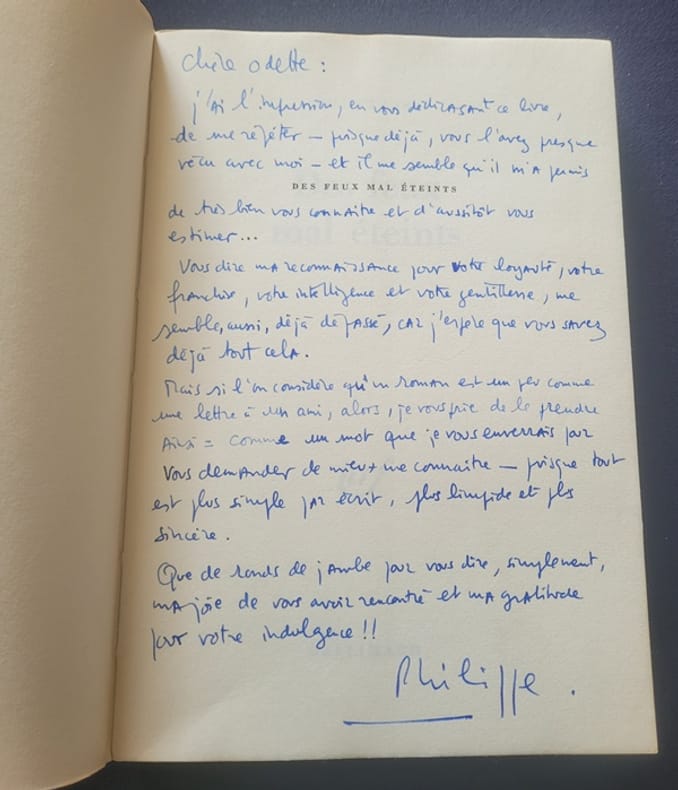 Chère Odette :
j'ai l'impression, en vous dédicaçant ce livre,
de me répéter — puisque déjà, vous l'avez presque
vécu avec moi — et il me semble qu'il m'a permis
DES FEUX MAL ÉTEINTS
de très bien vous connaitre et d'aussitôt vous
estimer...
Vous dire ma reconnaissance pour votre loyauté, votre
franchise, votre intelligence et votre gentillesse, me
semble, aussi, déjà dépassé, car j'espère que vous savez
déjà tout cela.
Mais si l'on considère qu'un roman est un peu comme
une lettre à un ami, alors, je vous prie de le prendre
ainsi = comme un mot que je vous enverrais pour
vous demander de mieux me connaitre — puisque tout
est plus simple par écrit, plus limpide et plus
sincère.
Que de ronds de jambe pour vous dire, simplement,
ma joie de vous avoir rencontré et ma gratitude
pour votre indulgence !!
Philippe.